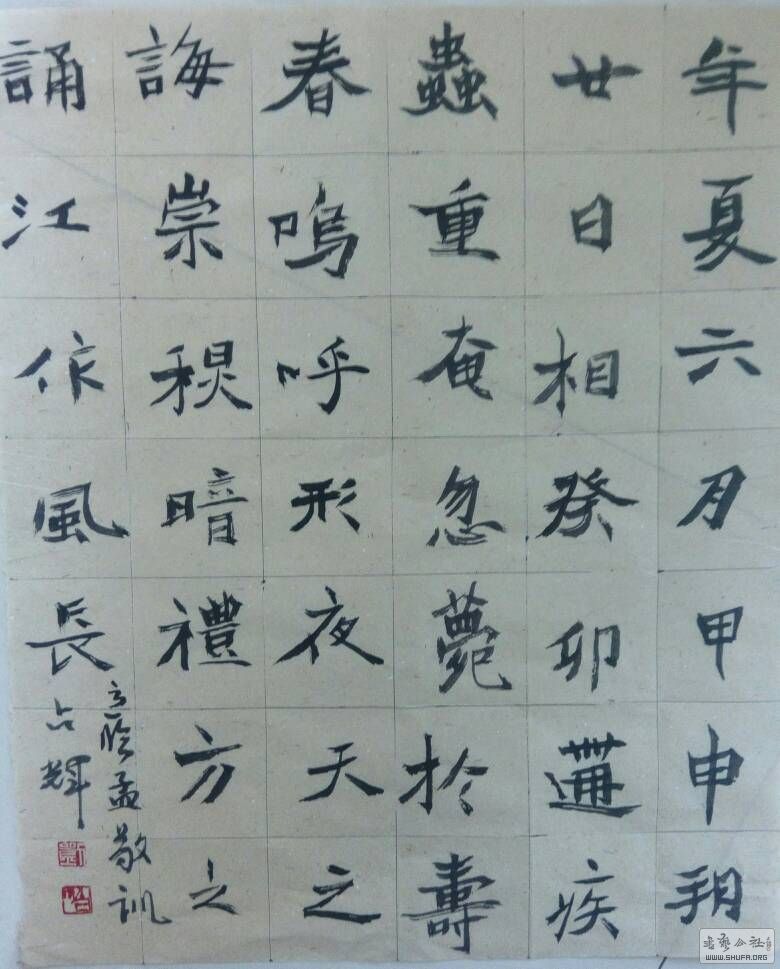 年夏六月甲申朔
廿日相癸卯遘疾
蟲重奄忽薨於壽
春嗚呼形夜天之
誨崇稷暗禮方之
誦江作風長
臨孟敬训
占輝
書藝公社
WWW.SHUFA.ORG